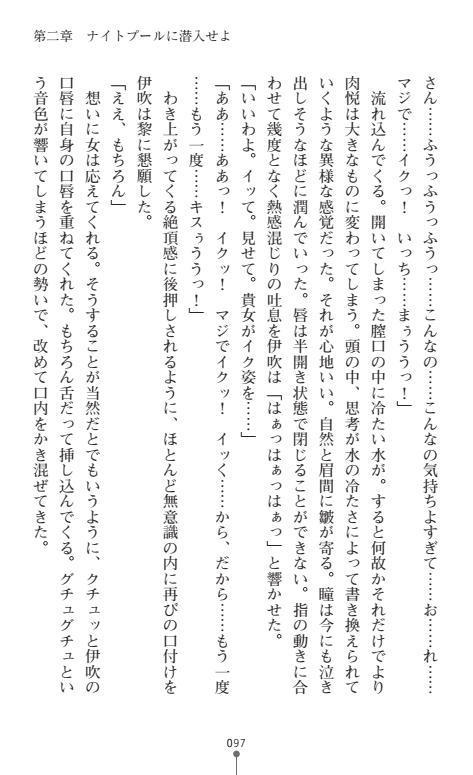 第二章　ナイトプールに潜入せよ
さん……ふうっふうっふうっ……こんなの……こんなの気持ちよすぎて……お……れ……
マジで……イクっ！　いっち……まぅううっ！」
　流れ込んでくる。開いてしまった膣口の中に冷たい水が。すると何故かそれだけでより
肉悦は大きなものに変わってしまう。頭の中、思考が水の冷たさによって書き換えられて
いくような異様な感覚だった。それが心地いい。自然と眉間に皺が寄る。瞳は今にも泣き
出しそうなほどに潤んでいった。唇は半開き状態で閉じることができない。指の動きに合
わせて幾度となく熱感混じりの吐息を伊吹は「はぁっはぁっはぁっ」と響かせた。
「いいわよ。イッて。見せて。貴女がイク姿を……」
「ああ……ああっ！　イクッ！　マジでイクッ！　イッく……から、だから……もう一度
……もう一度……キスぅううっ！」
　わき上がってくる絶頂感に後押しされるように、ほとんど無意識の内に再びの口付けを
伊吹は黎に懇願した。
「ええ、もちろん」
　想いに女は応えてくれる。そうすることが当然だとでもいうように、クチュッと伊吹の
口唇に自身の口唇を重ねてくれた。もちろん舌だって挿し込んでくる。グチュグチュとい
う音色が響いてしまうほどの勢いで、改めて口内をかき混ぜてきた。
097